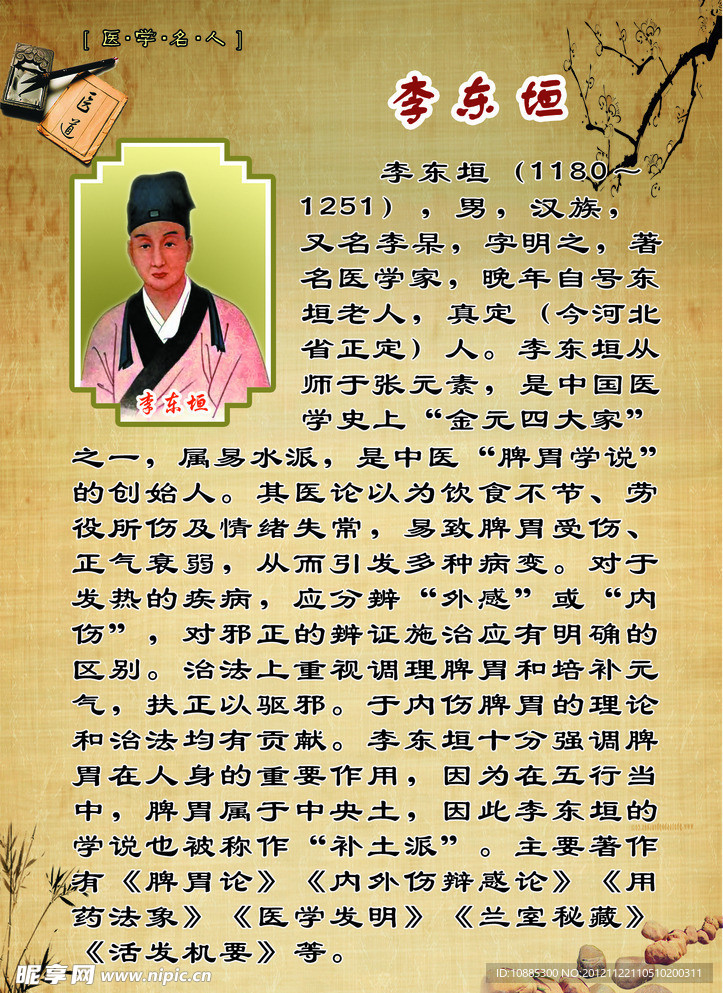 [医·学·名·人]
医道
李东垣
李东垣
李东垣（1180～
1251），男，汉族，
又名李杲，字明之，著
名医学家，晚年自号东
垣老人，真定（今河北
省正定）人。李东垣从
师于张元素，是中国医
学史上“金元四大家”
之一，属易水派，是中医“脾胃学说”
的创始人。其医论以为饮食不节、劳
役所伤及情绪失常，易致脾胃受伤、
正气衰弱，从而引发多种病变。对于
发热的疾病，应分辨“外感”或“内
伤”，对邪正的辨证施治应有明确的
区别。治法上重视调理脾胃和培补元
气，扶正以驱邪。于内伤脾胃的理论
和治法均有贡献。李东垣十分强调脾
胃在人身的重要作用，因为在五行当
中，脾胃属于中央土，因此李东垣的
学说也被称作“补土派”。主要著作
有《脾胃论》《内外伤辩惑论》《用
药法象》《医学发明》《兰室秘藏》
《活发机要》等。
昵享网 www.nipic.cn
ID:10885300 NO:20121122110510200311